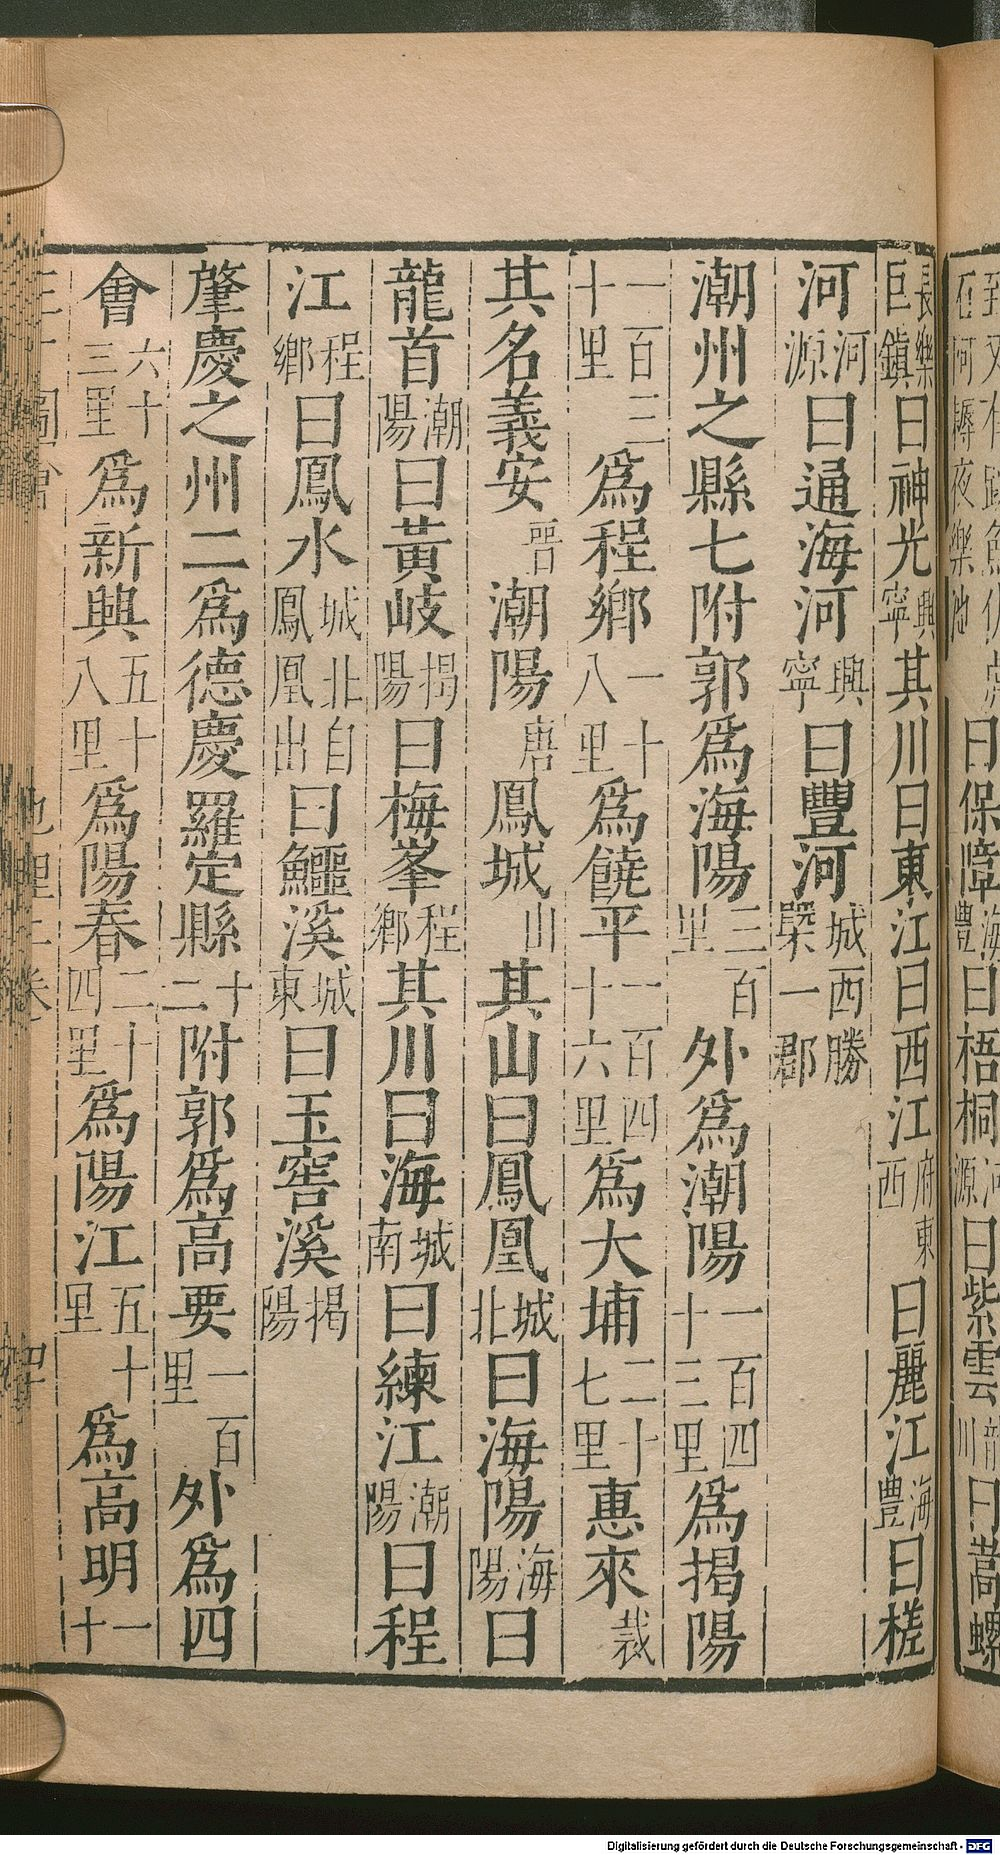 曰保障海豐曰梧桐河源曰紫雲龍川曰嵩螺
長樂巨鎮曰神光興寧其川曰東江曰西江府東西曰麗江海豐曰槎
河河源曰通海河興寧曰豐河城西勝槩一郡
潮州之縣七附郭爲海陽三百里外爲潮陽一百四十三里爲揭陽
一百三十里爲程鄉一十八里爲饒平一百四十六里爲大埔二十七里惠來裁
其名義安晉潮陽唐鳳城山其山曰鳳凰城北曰海陽海陽曰
龍首潮陽曰黃岐揭陽曰梅峯程鄉其川曰海城南曰練江潮陽曰程
江程鄉曰鳳水城北自鳳凰出曰鱷溪城東曰玉窖溪揭陽
肇慶之州二爲德慶羅定縣十二附郭爲高要一百里外爲四
會六十三里爲新興五十八里爲陽春二十四里爲陽江五十里爲高明一十
Digitalisierung gefördert durch die Deutsche Forschungsgemeinschaft - DFG